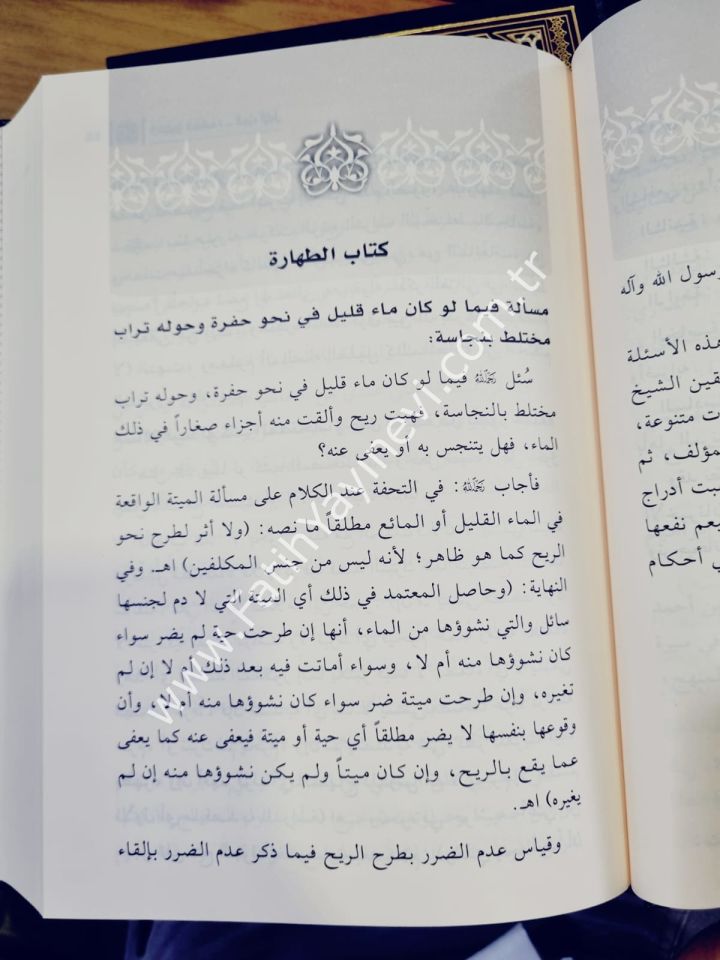 كتاب الطهارة
مسألة فيما لو كان ماء قليل في نحو حفرة وحوله تراب
مختلط بنجاسة:
سُئل رَحِمَهُ اللهُ فيما لو كان ماء قليل في نحو حفرة، وحوله تراب
مختلط بالنجاسة، فهبت ريح وألقت منه أجزاء صغاراً في ذلك
الماء، فهل يتنجس به أو يعفى عنه؟
فأجاب رَحِمَهُ اللهُ: في التحفة عند الكلام على مسألة الميتة الواقعة
في الماء القليل أو المائع مطلقاً ما نصه: (ولا أثر لطرح نحو
الريح كما هو ظاهر؛ لأنه ليس من جنس المكلفين) اهـ. وفي
النهاية: (وحاصل المعتمد في ذلك أي الميتة التي لا دم لجنسها
سائل والتي نشوؤها من الماء، أنها إن طرحت حية لم يضر سواء
كان نشوؤها منه أم لا، وسواء أماتت فيه بعد ذلك أم لا إن لم
تغيره، وإن طرحت ميتة ضر سواء كان نشوؤها منه أم لا، وأن
وقوعها بنفسها لا يضر مطلقاً أي حية أو ميتة فيعفى عنه كما يعفى
عما يقع بالريح، وإن كان ميتاً ولم يكن نشوؤها منه إن لم
يغيره) اهـ.
وقياس عدم الضرر بطرح الريح فيما ذكر عدم الضرر بإلقاء
رسول الله وآله
هذه الأسئلة
الشيخ
ت متنوعة،
ثم
أدراج
نفعها
أحكام
www.FatihYayinevi.com.tr